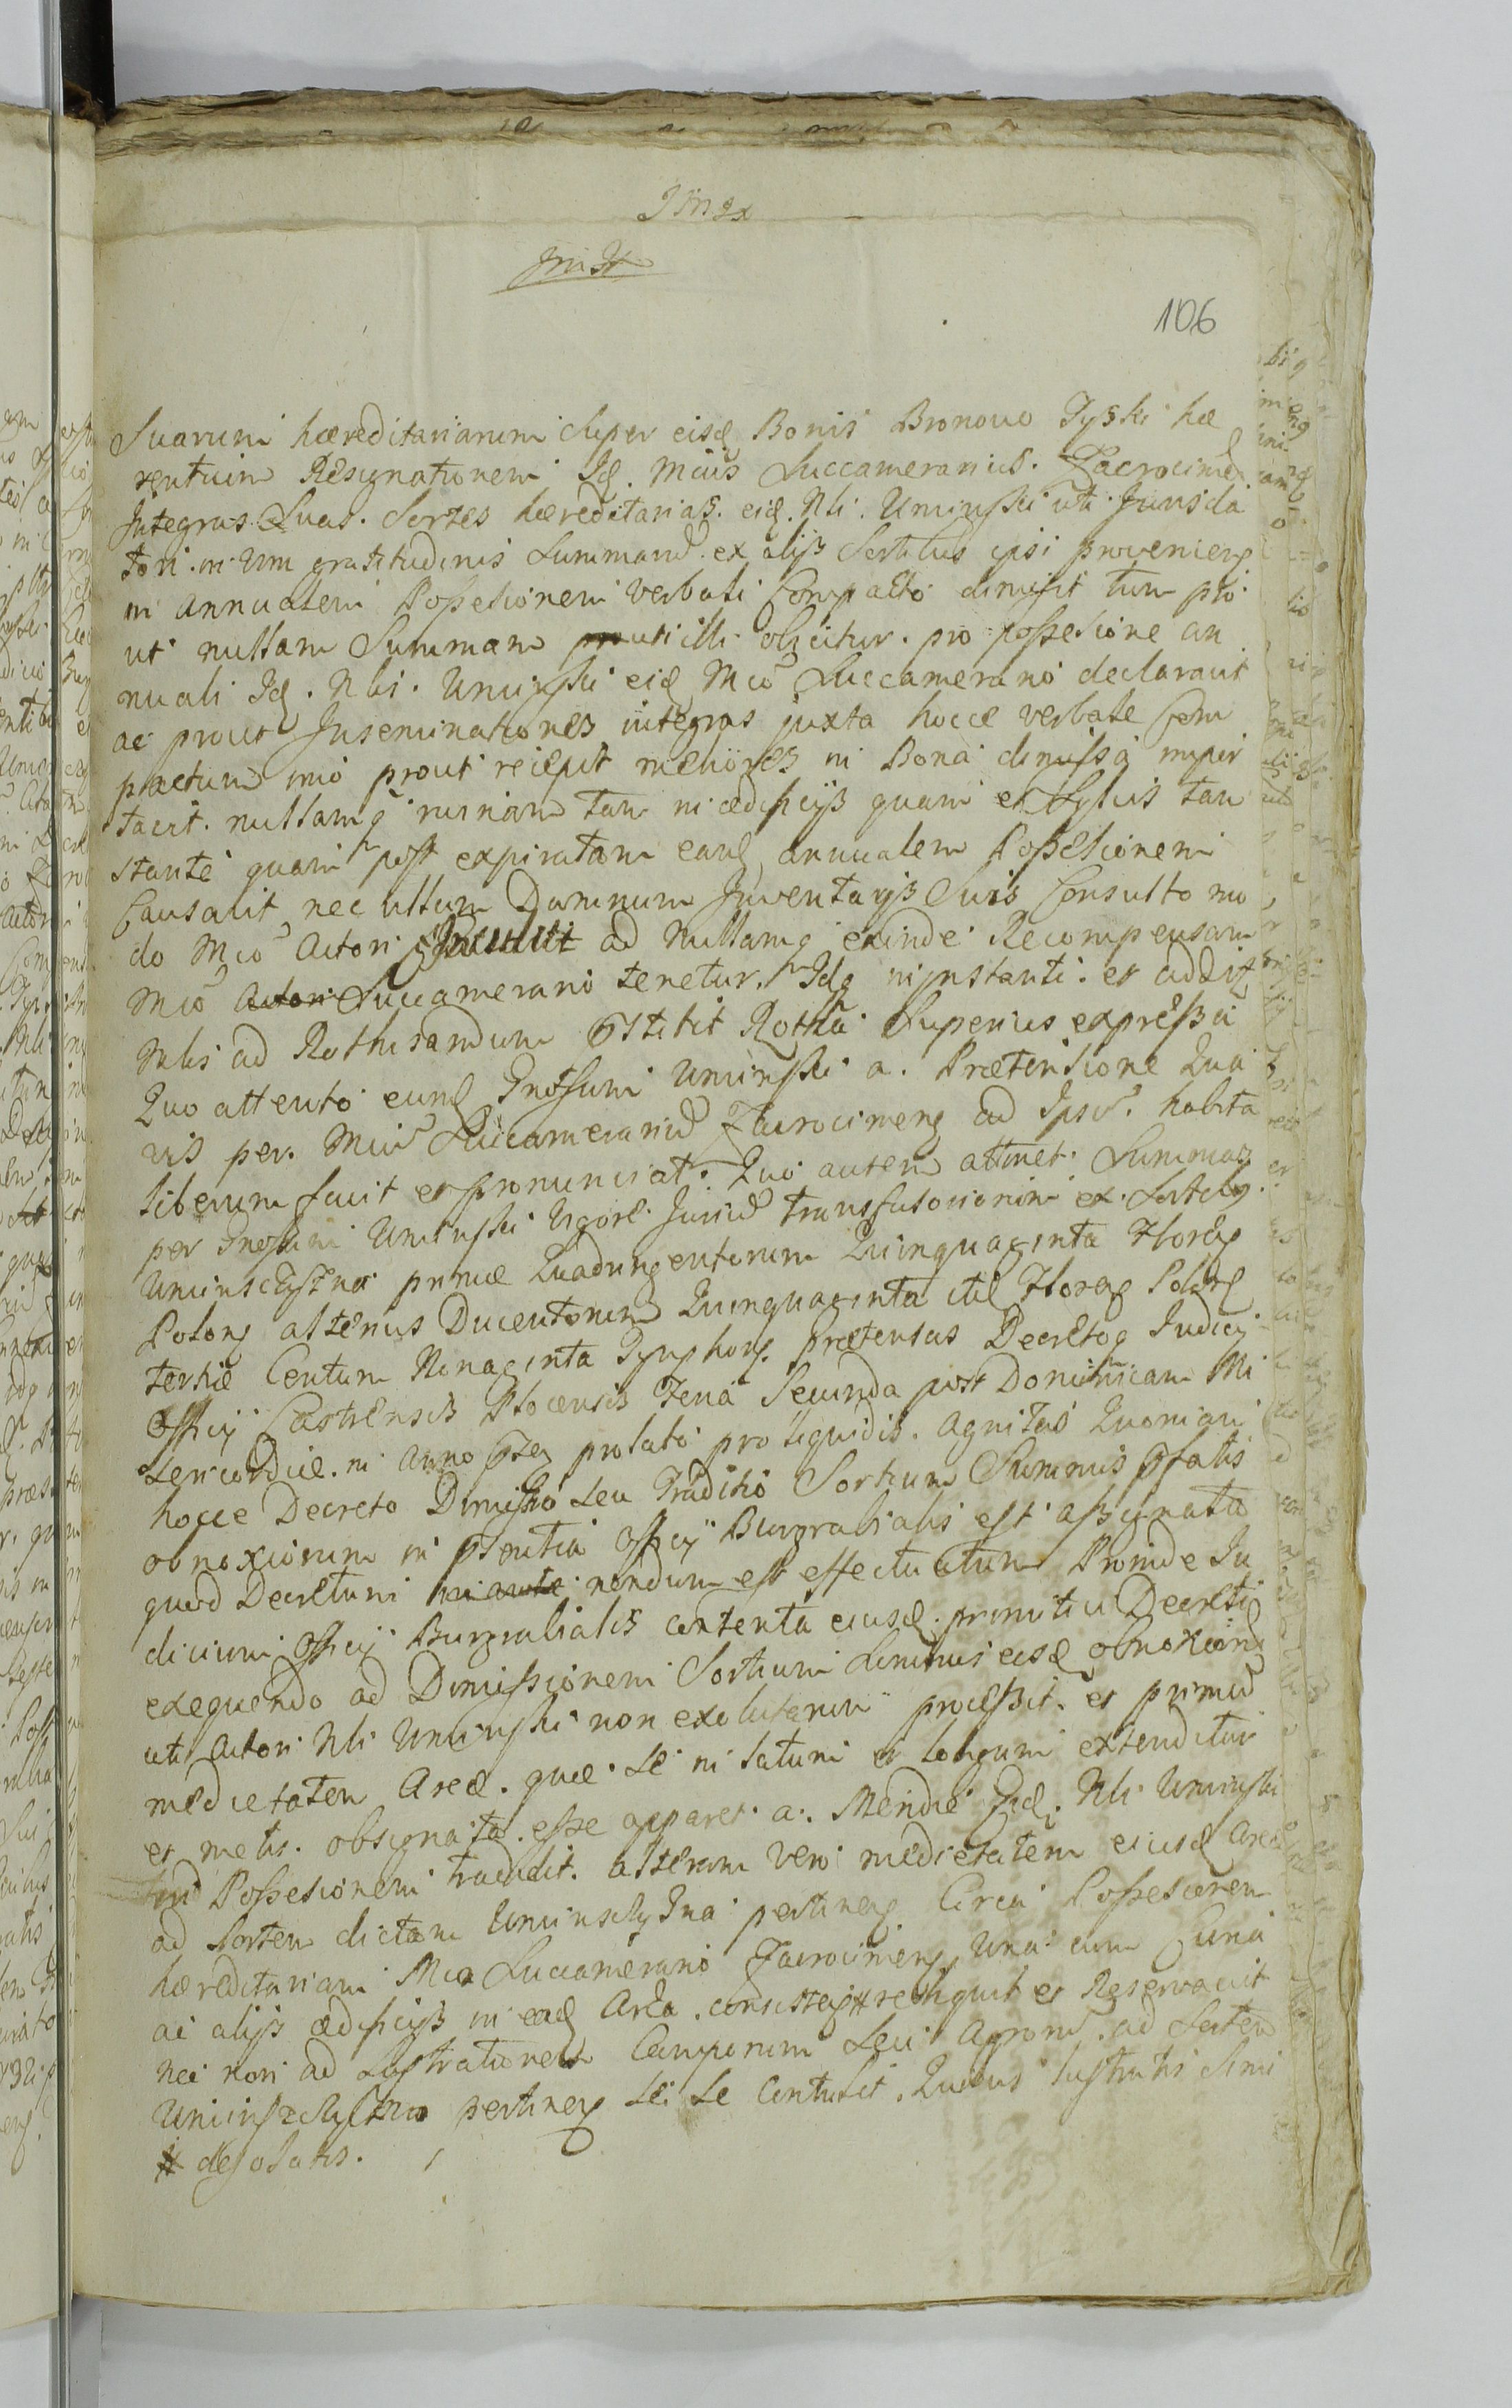 106
Suarum hæreditariarum super eisd Bonis Bronowo Tyski hæ
rentium Resignationem Id. Mcus Succamerarius. Zacrocimen
Integras Suas. Sortes hæreditarias. eid. Nli. Uminski uti Jurisda
tori. in vim gratitudinis Summarum. ex alijs Sortibus ipsi provenien
in annualem Possesionem verbali Compacto dimisit tum pro
ut nullam Summam uti illi obicitur. pro possesione an
nuali Id. Nlis. Uminski eid Mco Succamerario declaravit
ac prout Inseminationes integras juxta hocce verbale Com
pactum imo prout recepit meliores in Bona dimissa imper
tavit. nullamq ruinam tam in ædificijs quam et Sylvis tam
stante quam post expiratam eand annualem Possesionem
Causavit nec ullum Damnum Inventarijs Suis Consulto mo
do Mco Actori Intulit ad nullamq exinde Recompensam
Mco Actori Succamerario tenetur. Idq in instanti. et addit
Nlis ad Rothisandum Rotha Superius expressa
Quo attento eund Gnosum Uminski a. Prætensione Qua
vis per. Mcum Succamerarium Zacrocimen ad Ipsum. habita
liberum facit et pronunciat. Quo autem attinet. Summas
per Gnosum Uminski vigore Jurium transfusoriorum ex Sortibus
Uminsczyzna primæ Quadringentorum Quinquaginta Floren
Polon alterius Ducentorum Quinquaginta itid Floren Polon
tertiæ Centum Nonaginta Tymphon. prætensas Decretoq Judicij
Officij Castrensis Plocensis Feria Secunda post Dominicam Mi
sericordiæ. in Anno prolato pro liquidis. agnitas Quoniam
hocce Decreto Dimissio Seu Traditio Sortium Summis pfatis
obnoxiorum in psentia Officij Burgrabialis est assignata
quod Decretum nondum est effectuatum Proinde Ju
dicium Officij Burgrabialis contenta eiusd. primitivi Decreti
exequendo ad Dimissionem Sortium Summis eisd obnoxiarum
uti Actori Nli Uminski non exolutarum processit. et primum
medietatem Areæ. quæ. Se in latum et longum extenditur
et metis. obsignata. esse apparet a. Meridie Eid. Nli Uminski
Possesionem tradidit. alteram vero medietatem eiusd Areæ
ad Sortem dictam Uminsczyzna pertinen Circa Possesionem
hæreditariam Mci Succamerario Zacrocimen una cum Curia
ac alijs ædificijs in ead Area. consisten # reliquit et Reservavit
nec non ad Lustrationem Camporum Seu Agrorum. ad Sortem
Uminszczyzna pertinen Se Contulit. Quibus lustratis Simi
# desolatis.